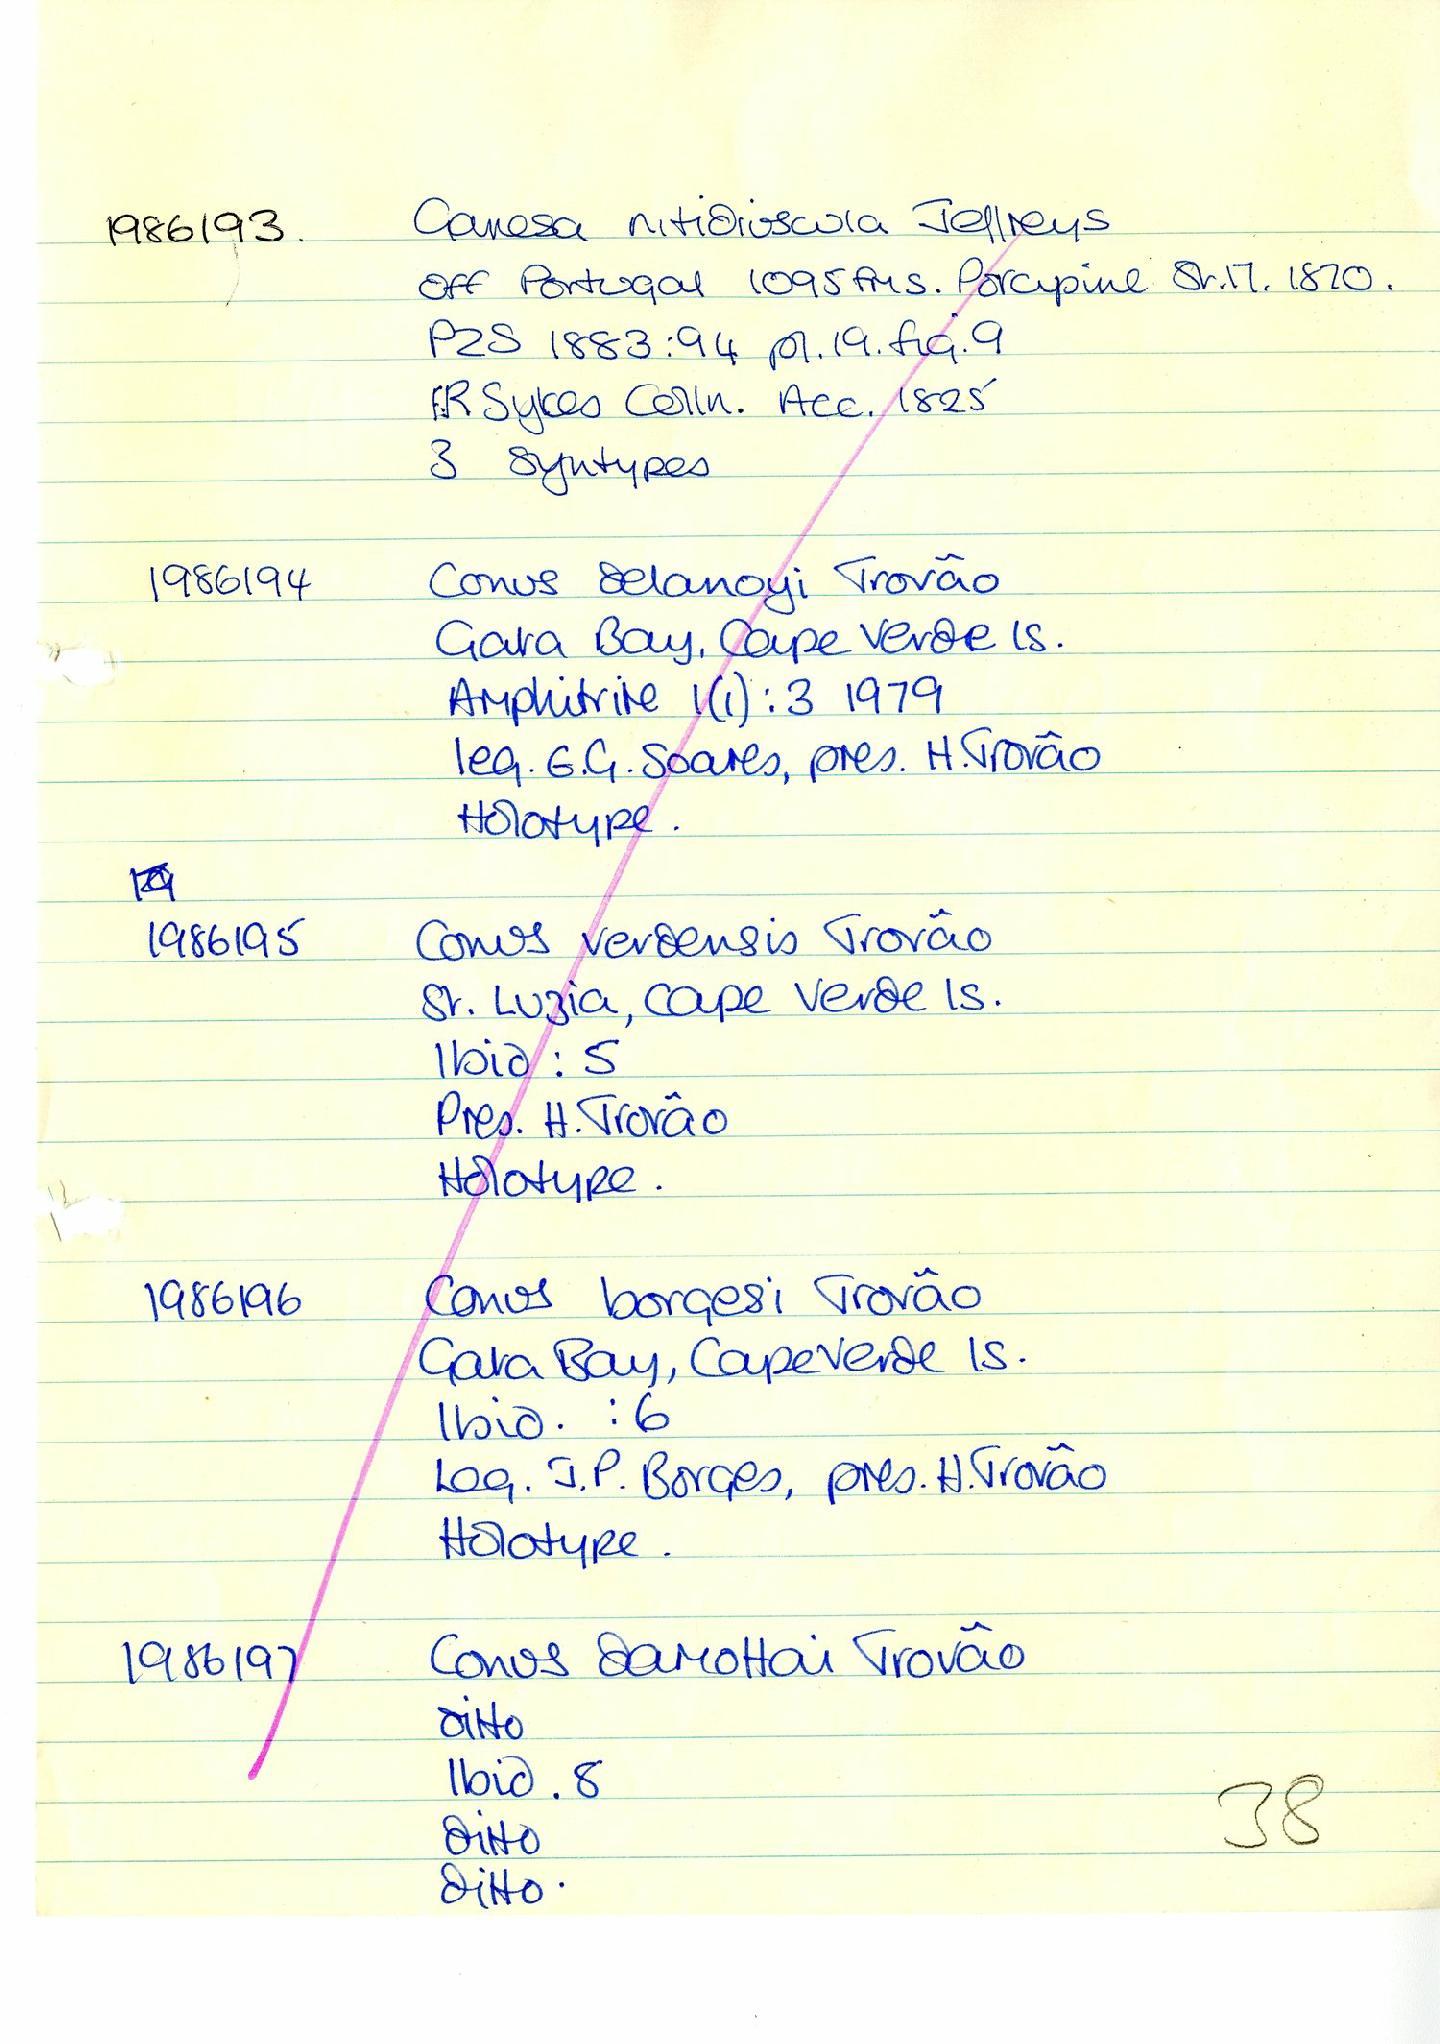 1986193. Ganesa nitidiuscula Jeffreys
off Portugal 1095 fms. Porcupine St. 17. 1870.
PZS 1883:94 pl. 19. fig. 9
ER Sykes Colln. Acc. 1825
3 Syntypes
1986194 Conus delanoyi Trovão
Gata Bay, Cape Verde Is.
Amphitrite 1(1):3 1979
leg. G.G. Soares, pres. H. Trovão
Holotype.
1986195 Conus verdensis Trovão
St. Luzia, Cape Verde Is.
Ibid : 5
Pres. H. Trovão
Holotype.
1986196 Conus borgesi Trovão
Gata Bay, Cape Verde Is.
Ibid. : 6
Leg. J.P. Borges, pres. H. Trovão
Holotype.
1986197 Conus damottai Trovão
ditto
Ibid. 8
ditto
ditto.
38